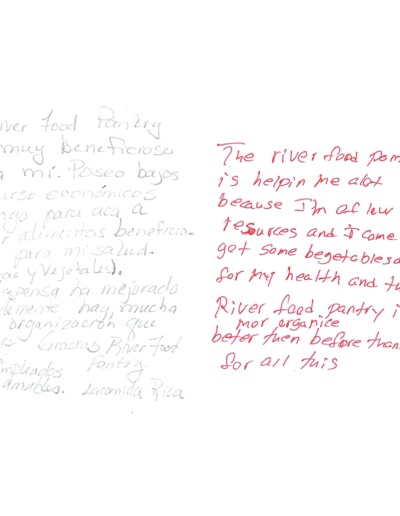 iver Food Pantry
muy beneficiosa
a mí. Poseo bajos
urso económicos
ngo para aca a
r alimentos beneficio-
para mi salud.
as y vegetales).
spensa ha mejorado
lemente hay mucha
organización que
s. Gracias River Food
mpleados Pantry.
amables. La comida Rica
The river food pan
is helpin me alot
because I'm of low
resources and I come
get some begetables a
for my health and th
River food pantry i
mor organice
beter then before than
for all this